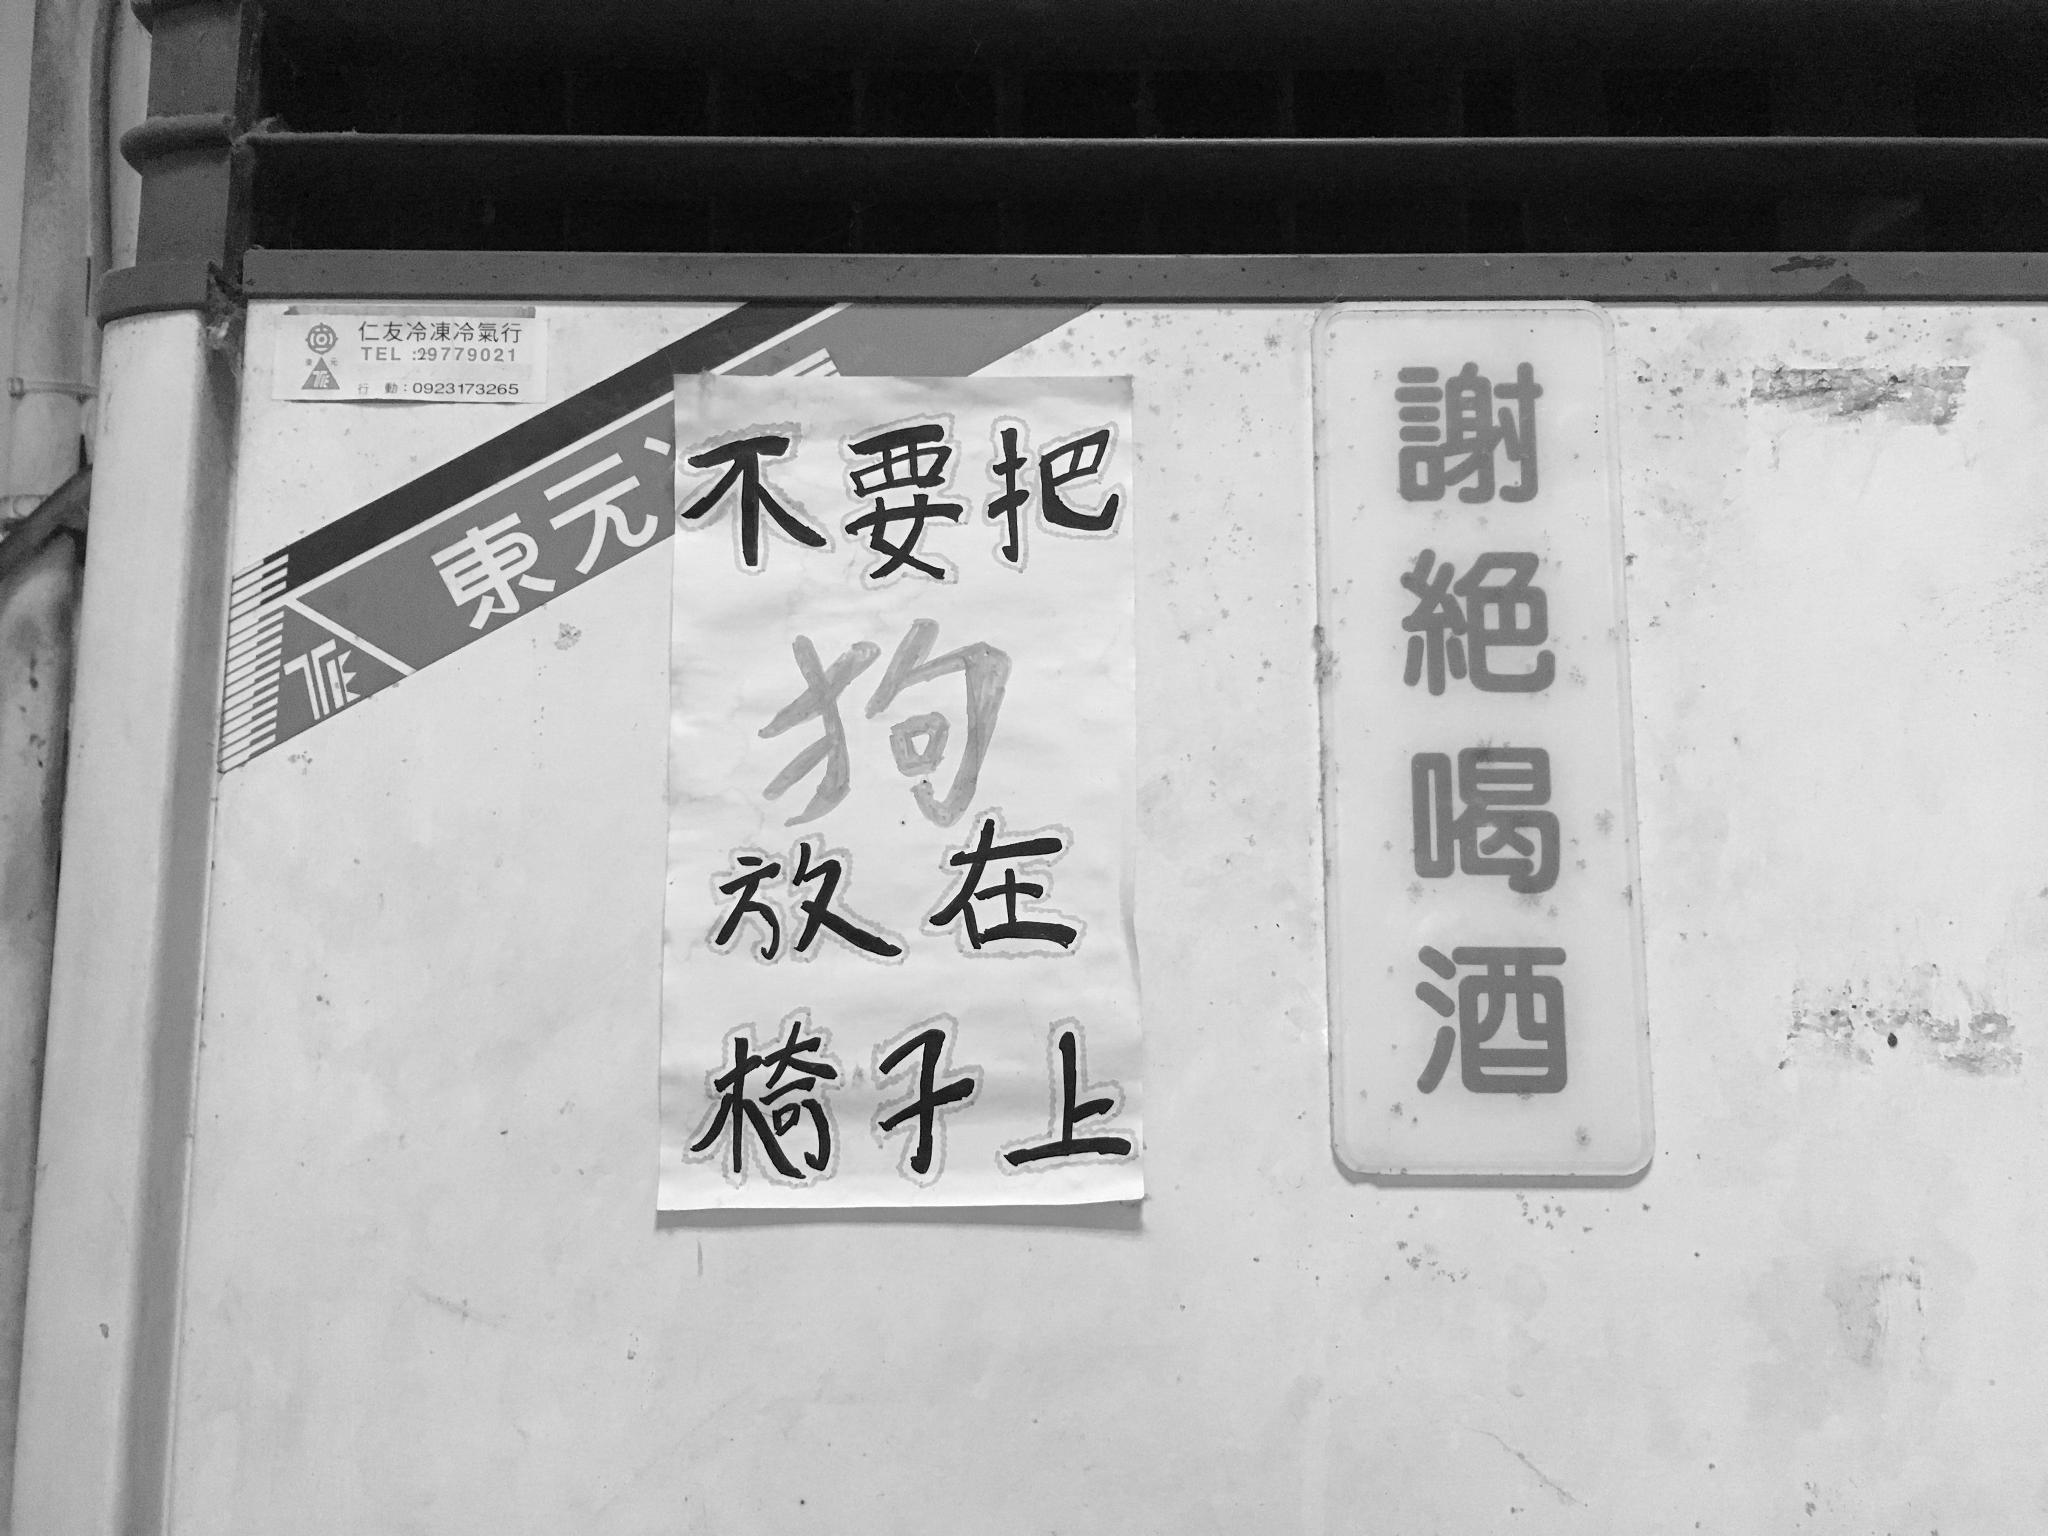 仁友冷凍冷氣行
TEL:29779021
行動:0923173265
東元
TE
不要把
狗
放在
椅子上
謝絕喝酒